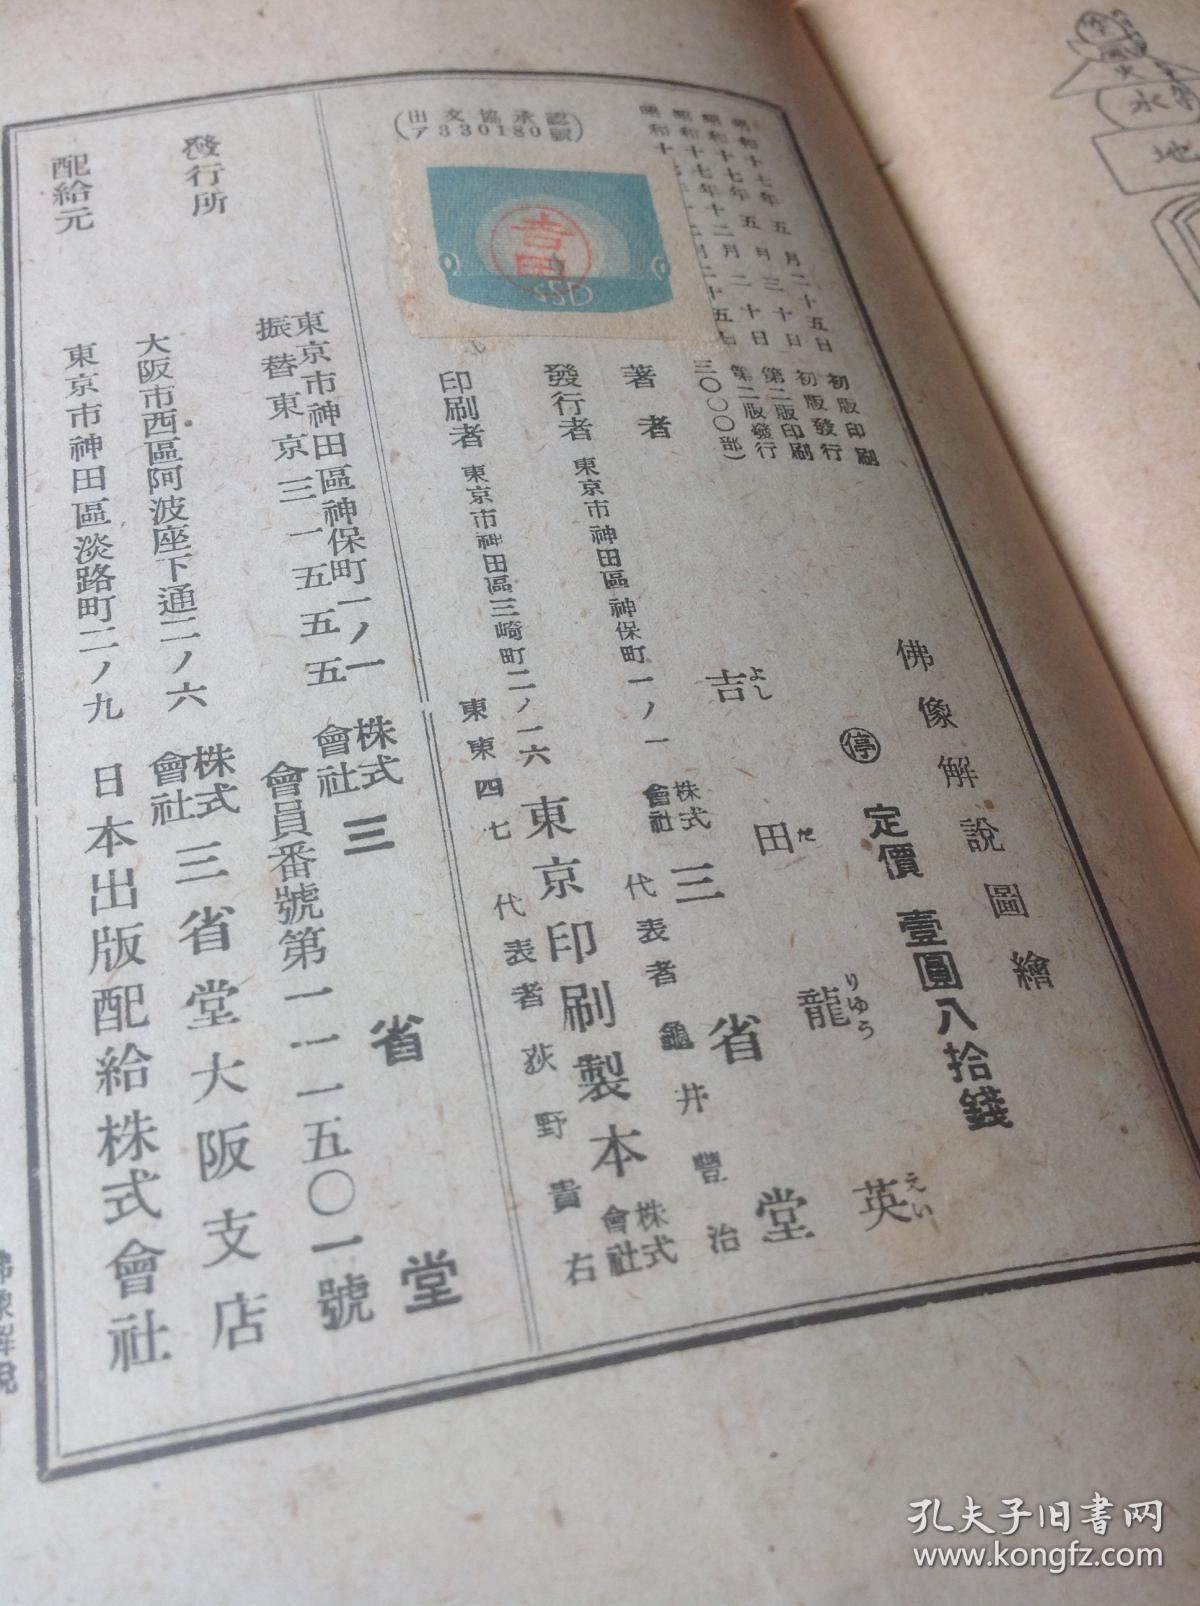 佛像解說圖繪
停 定價 壹圓八拾錢
昭和十七年五月二十五日 初版印刷
昭和十七年五月三十日 初版發行
昭和十七年十二月二十日 第二版印刷
第二版發行
三〇〇〇部)
著者 吉田龍英
よし だ りゆう えい
發行者 東京市神田區神保町一ノ一 株式會社 三省堂
代表者 龜井豐治
印刷者 東京市神田區三崎町二ノ一六 東京印刷製本株式會社
東東四七 代表者 荻野貴右
(出文協承認
ア330180號)
吉田
SSD
發行所 東京市神田區神保町一ノ一 株式會社 三省堂
振替東京三一五五五 會員番號第一一一五〇一號
大阪市西區阿波座下通二ノ六 株式會社 三省堂大阪支店
配給元 東京市神田區淡路町二ノ九 日本出版配給株式會社
地
孔夫子旧书网
www.kongfz.com